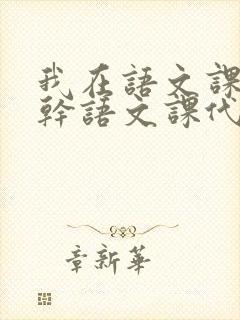 我在語文課
幹語文課代
章新華